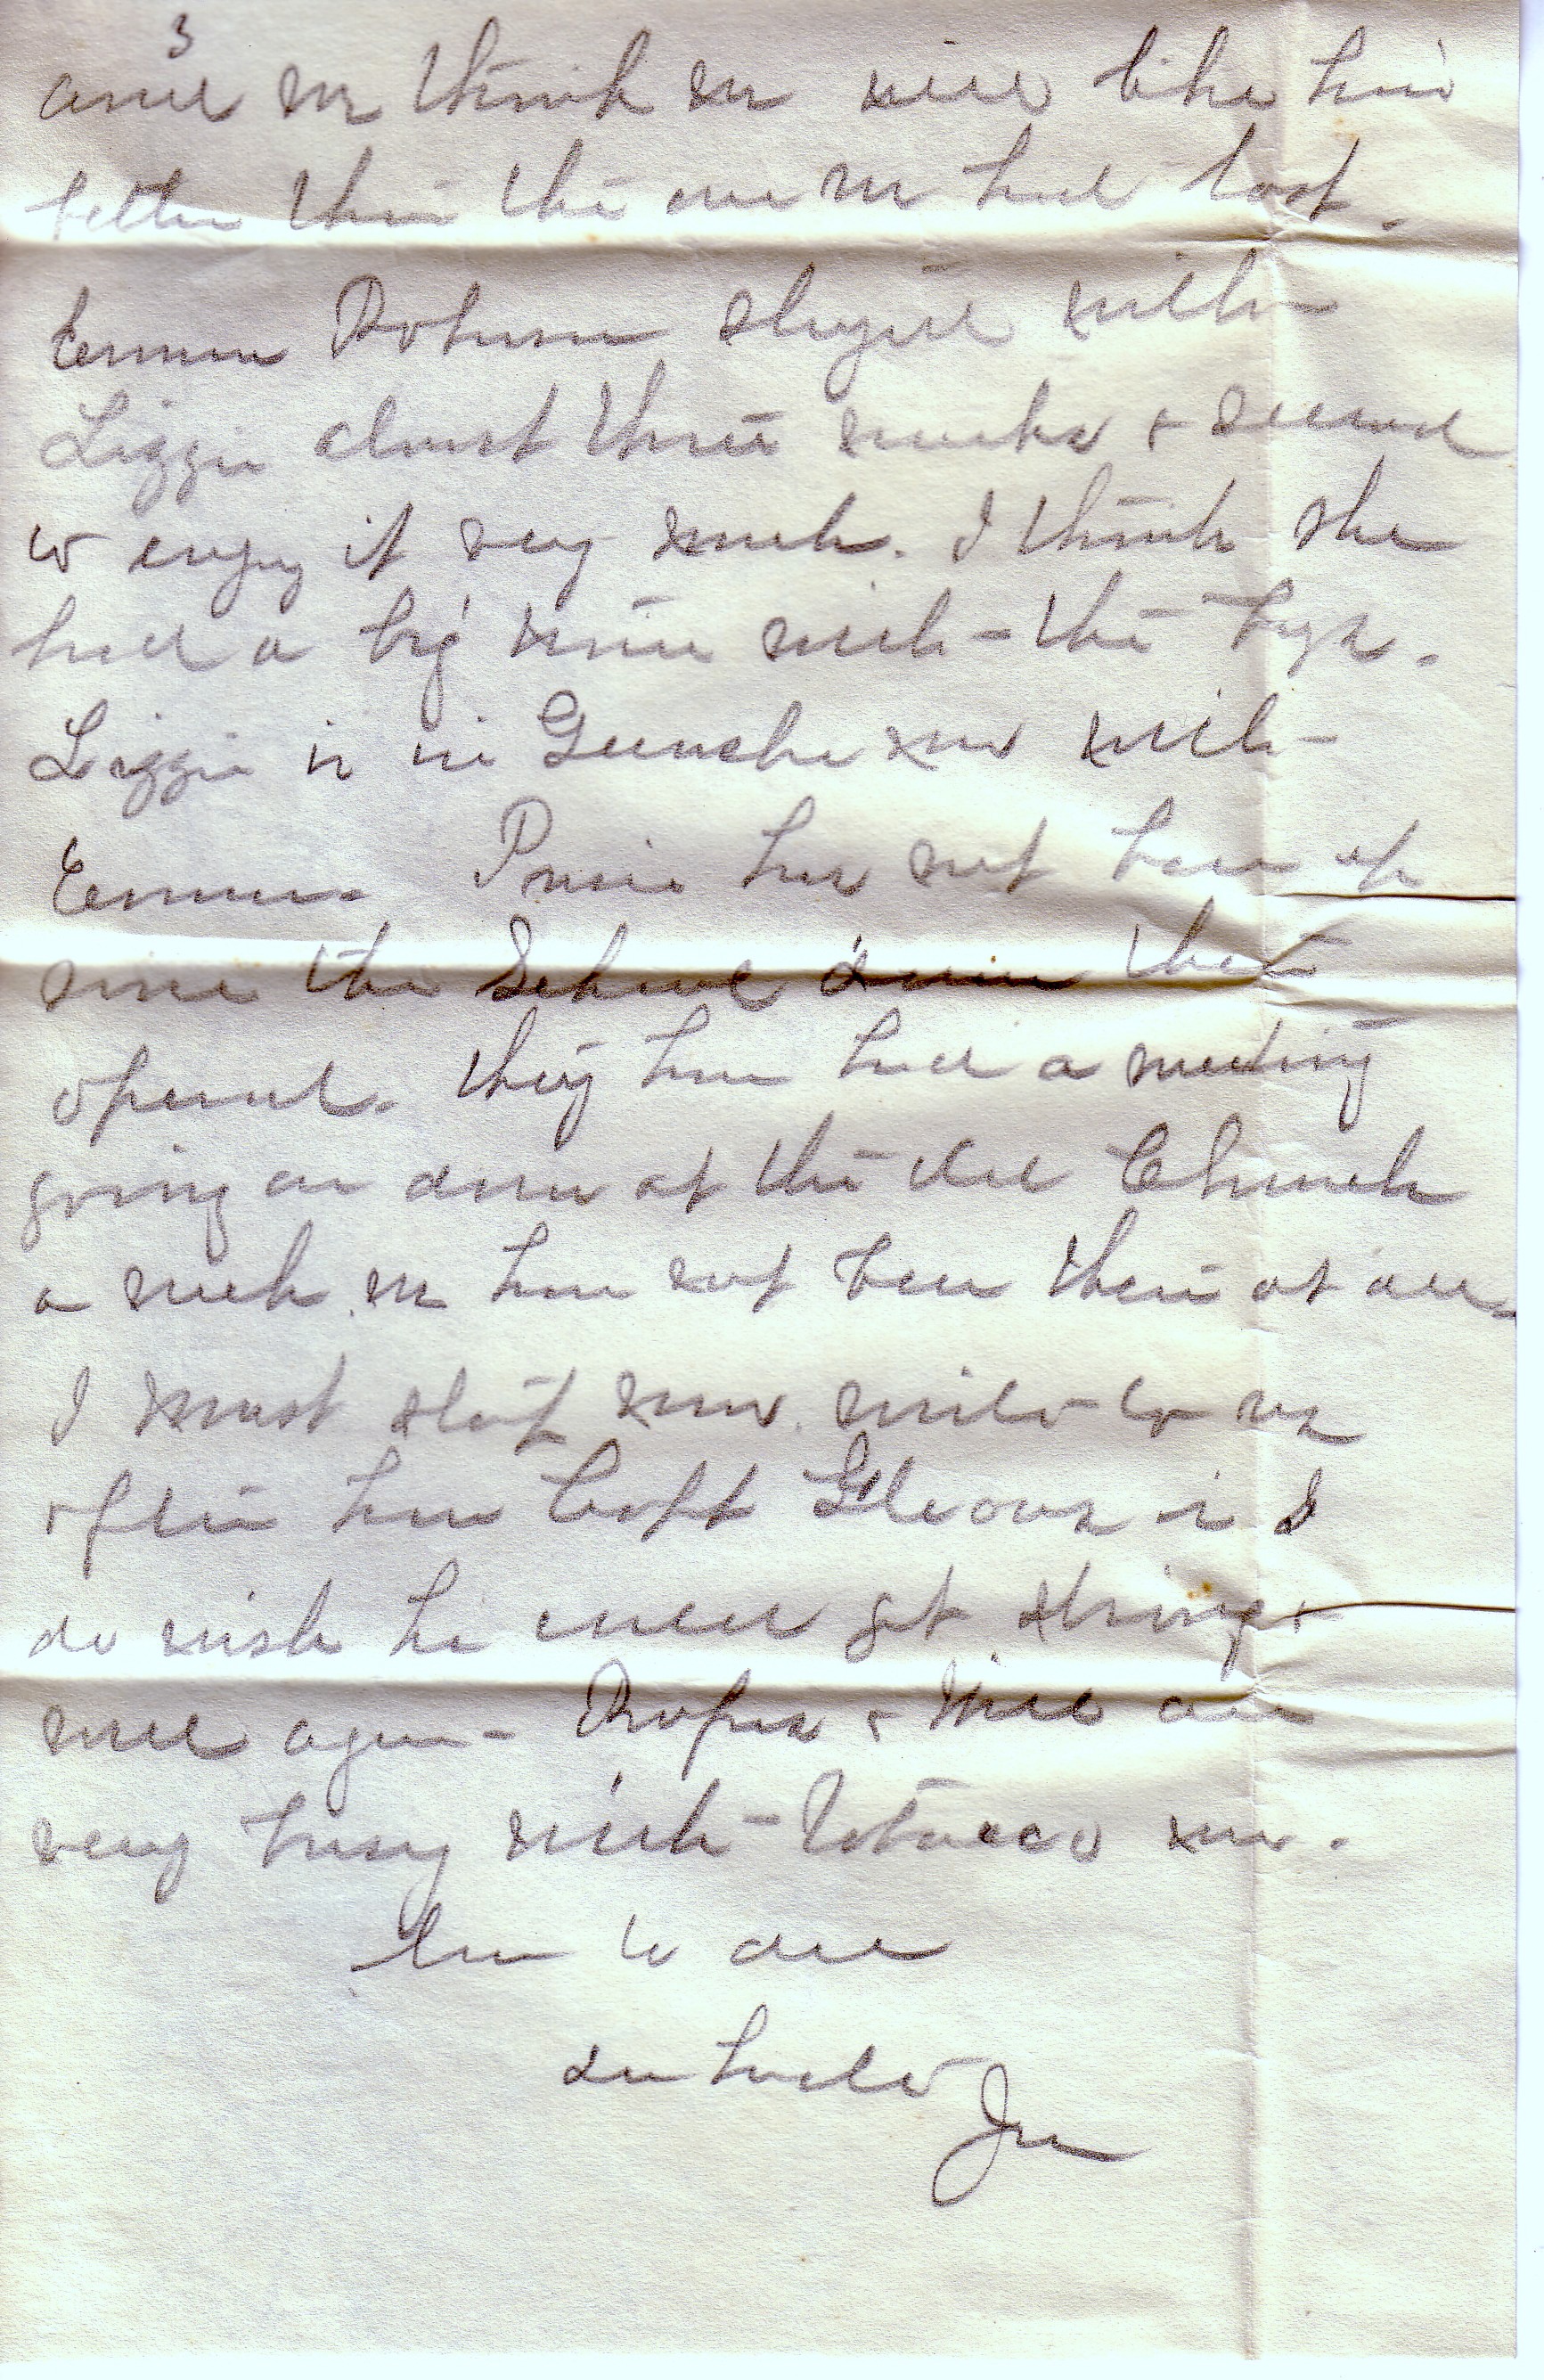 3
and we think we will like him
better than the one we had last.
Emma stayed with
Lizzie almost three weeks & seemed
to enjoy it very much. I think she
had a big time with the boys.
Lizzie is in now with
Emma. has not been up
since the School down there
opened. they have had a meeting
going on down at the old Church
a week. we have not been there at all
I must stop now. write to us
often how Capt is I
do wish he could get strong &
well again - & Will are
very busy with Tobacco now.
Love to all
devotedly